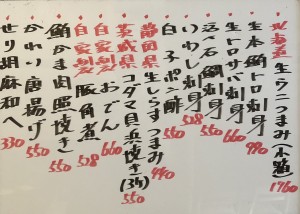 北海道 生ウニつまみ(小箱) 1760
生本鮪トロ刺身 990
生トロサバ刺身 660
活〆石鯛刺身 550
いわし刺身 528
白子ポン酢 550
静岡県 生しらすつまみ 440
茨城県 コダマ貝浜焼き(3ケ) 550
自家製 おでん
自家製 豚角煮 528
鮪かま肉照焼き 550
かわり唐揚げ 550
せり胡麻和へ 330